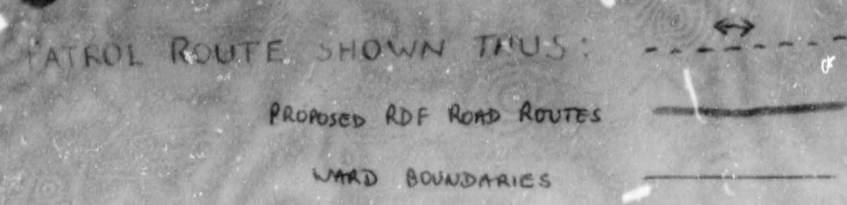 PATROL ROUTE SHOWN THUS:
PROPOSED RDF ROAD ROUTES
WARD BOUNDARIES